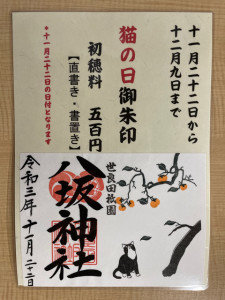 十一月二十二日から
十二月九日まで
猫の日御朱印
初穂料　五百円
【直書き・書置き】
*十一月二十二日の日付となります
世良田祇園
八坂神社
令和三年十一月二十二日